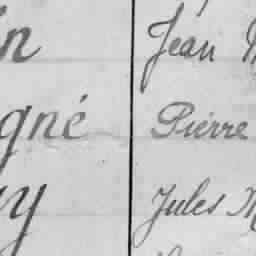 in Jean M
gné Pierre
y Jules M